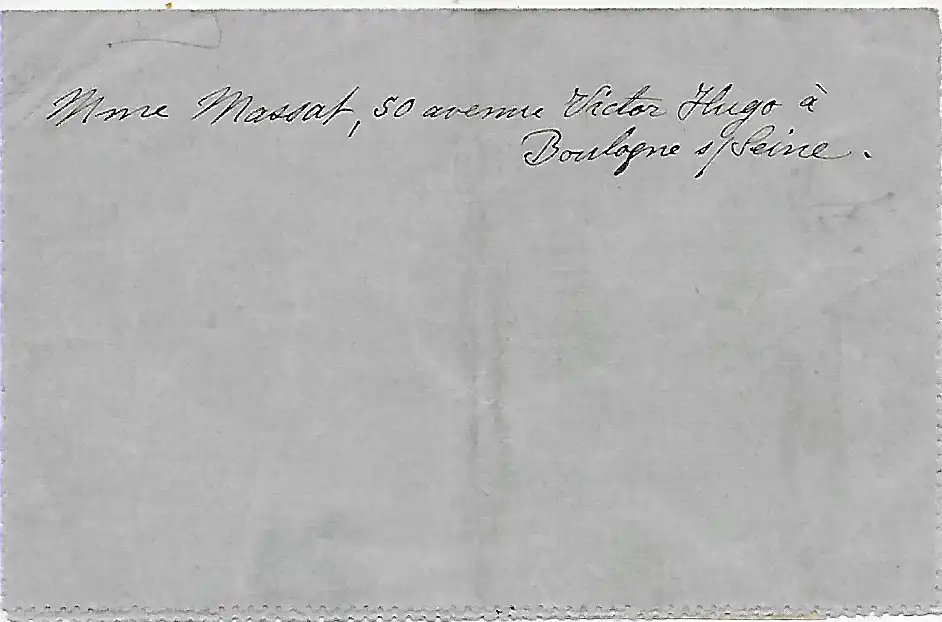 Mme Massat, 50 avenue Victor Hugo à
Boulogne s/Seine.